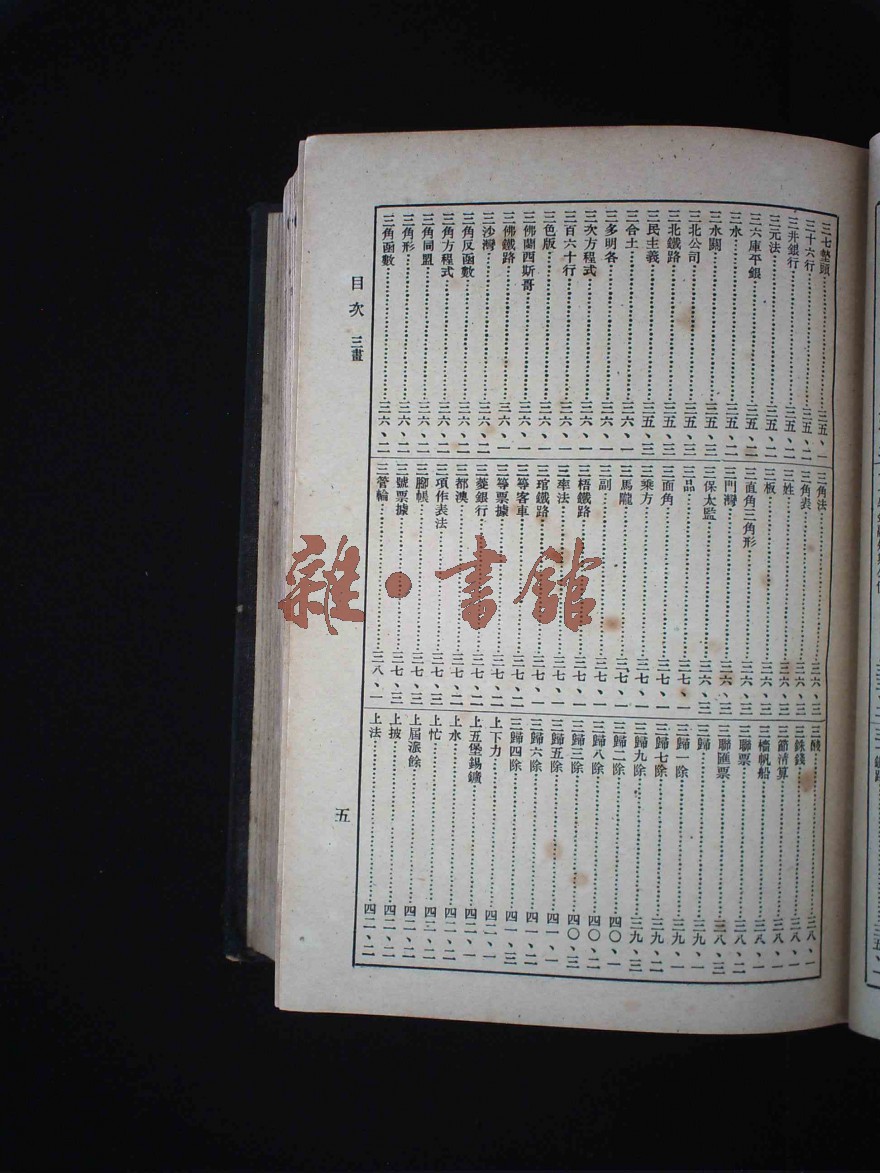 三七墊頭………三五、一
三十六行………三五、二
三井銀行………三五、二
三元法………三五、二
三六庫平銀………三五、二
三水………三五、二
三水關………三五、三
三北公司………三五、三
三北鐵路………三五、三
三民主義………三五、三
三合土………三六、一
三多明各………三六、一
三次方程式………三六、一
三百六十行………三六、一
三色版………三六、一
三佛蘭西斯哥………三六、一
三佛鐵路………三六、一
三沙灣………三六、二
三角反函數………三六、二
三角方程式………三六、二
三角同盟………三六、二
三角形………三六、二
三角函數………三六、二
三角法………三六、三
三角表………三六、三
三姓………三六、三
三板………三六、三
三直角三角形………三六、三
三門灣………三六、三
三保太監………三六、三
三品………三七、一
三面角………三七、一
三乘方………三七、一
三馬隴………三七、一
三副………三七、一
三梧鐵路………三七、一
三率法………三七、一
三琯鐵路………三七、一
三等客車………三七、二
三等票據………三七、二
三菱銀行………三七、二
三都澳………三七、二
三項作表法………三七、三
三腳帳………三七、三
三號票據………三七、三
三菅輪………三八、一
三酸………三八、一
三銖錢………三八、一
三節清算………三八、一
三檣帆船………三八、一
三聯票………三八、二
三聯匯票………三八、三
三歸………三九、一
三歸一除………三九、一
三歸七除………三九、二
三歸九除………三九、三
三歸二除………四〇、一
三歸八除………四〇、二
三歸三除………四〇、三
三歸五除………四一、一
三歸六除………四一、二
三歸四除………四一、三
上下力………四二、一
上五堡錫鑛………四二、一
上水………四二、二
上忙………四二、二
上屆滾餘………四二、二
上披………四二、二
上法………四二、二
目次 三畫
五
雜·書館